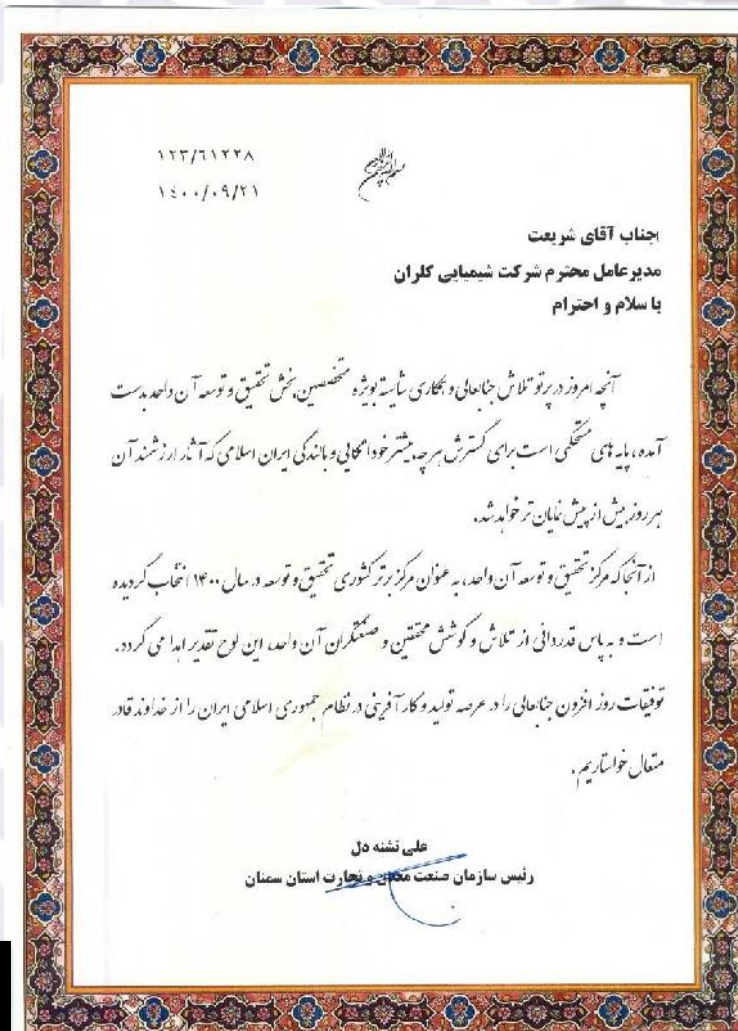 ۱۲۳/۶۱۲۲۸
۱۴۰۰/۰۹/۲۱
بسم الله الرحمن الرحیم
جناب آقای شریعت
مدیرعامل محترم شرکت شیمیایی کلران
با سلام و احترام
آنچه امروز در پرتو تلاش جنابعالی و همکاری شایسته بویژه متخصصین بخش تحقیق و توسعه آن واحد بدست
آمده، پایه های مستحکمی است برای گسترش هر چه بیشتر خوداتکایی و بالندگی ایران اسلامی که آثار ارزشمند آن
هر روز بیش از پیش نمایان تر خواهد شد.
از آنجا که مرکز تحقیق و توسعه آن واحد، به عنوان مرکز برتر کشوری تحقیق و توسعه در سال ۱۴۰۰ انتخاب گردیده
است و به پاس قدردانی از تلاش و کوشش محققین و صنعتگران آن واحد، این لوح تقدیر اهدا می گردد.
توفیقات روز افزون جنابعالی را در عرصه تولید و کارآفرینی در نظام جمهوری اسلامی ایران را از خداوند قادر
متعال خواستاریم.
علی تشنه دل
رئیس سازمان صنعت معدن و تجارت استان سمنان